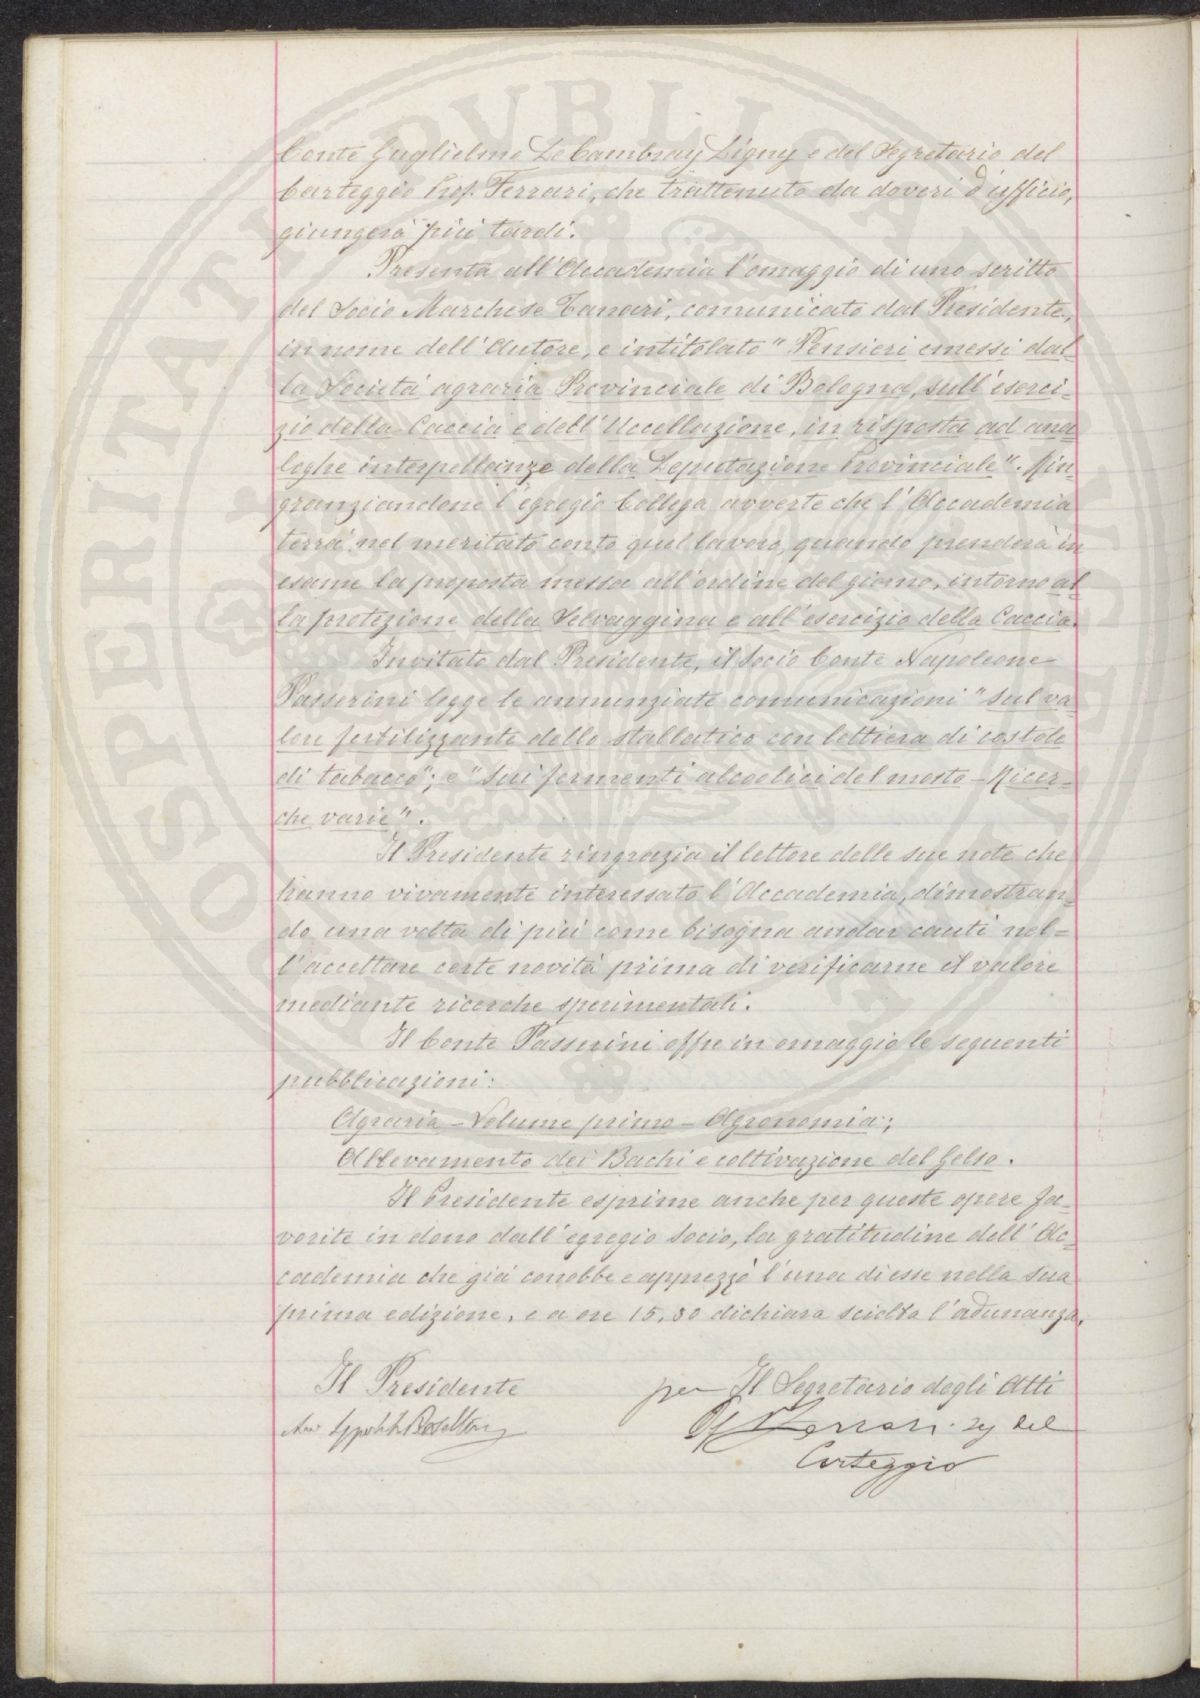 Conte Guglielmo De Cambray Digny e del Segretario del
Carteggio Prof. Ferrari, che trattenuto da doveri d'ufficio,
giungerà più tardi.
Presenta all'Accademia l'omaggio di uno scritto
del Socio Marchese Tanari, comunicato dal Presidente,
in nome dell'Autore, e intitolato "Pensieri emessi dal-
la Società agraria Provinciale di Bologna, sull'eserci-
zio della Caccia e dell'Uccellazione, in risposta ad ana-
loghe interpellanze della Deputazione Provinciale". Rin-
granziandone l'egregio Collega avverte che l'Accademia
terrà nel meritato conto quel lavoro, quando prenderà in
esame la proposta messa all'ordine del giorno, intorno al-
la protezione della Selvaggina e all'esercizio della Caccia.
Invitato dal Presidente, il Socio Conte Napoleone
Passerini legge le annunziate comunicazioni "Sul va-
lore fertilizzante dello stallatico con lettiera di costole
di tabacco"; e "Sui fermenti alcoolici del mosto - Ricer-
che varie".
Il Presidente ringrazia il lettore delle sue note che
hanno vivamente interessato l'Accademia, dimostran-
do una volta di più come bisogna andar cauti nel-
l'accettare certe novità prima di verificarne il valore
mediante ricerche sperimentali.
Il Conte Passerini offre in omaggio le seguenti
pubblicazioni:
Agraria - Volume primo - Agronomia;
Allevamento dei Bachi e coltivazione del Gelso.
Il Presidente esprime anche per queste opere fa-
vorite in dono dall'egregio Socio, la gratitudine dell'Ac-
cademia che già conobbe e apprezzò l'una di esse nella sua
prima edizione, e a ore 15,30 dichiara sciolta l'adunanza.
Il Presidente
per Il Segretario degli Atti
Ferrari. Seg del
Carteggio
PROSPERITATI PVBLICAE AVGENDAE